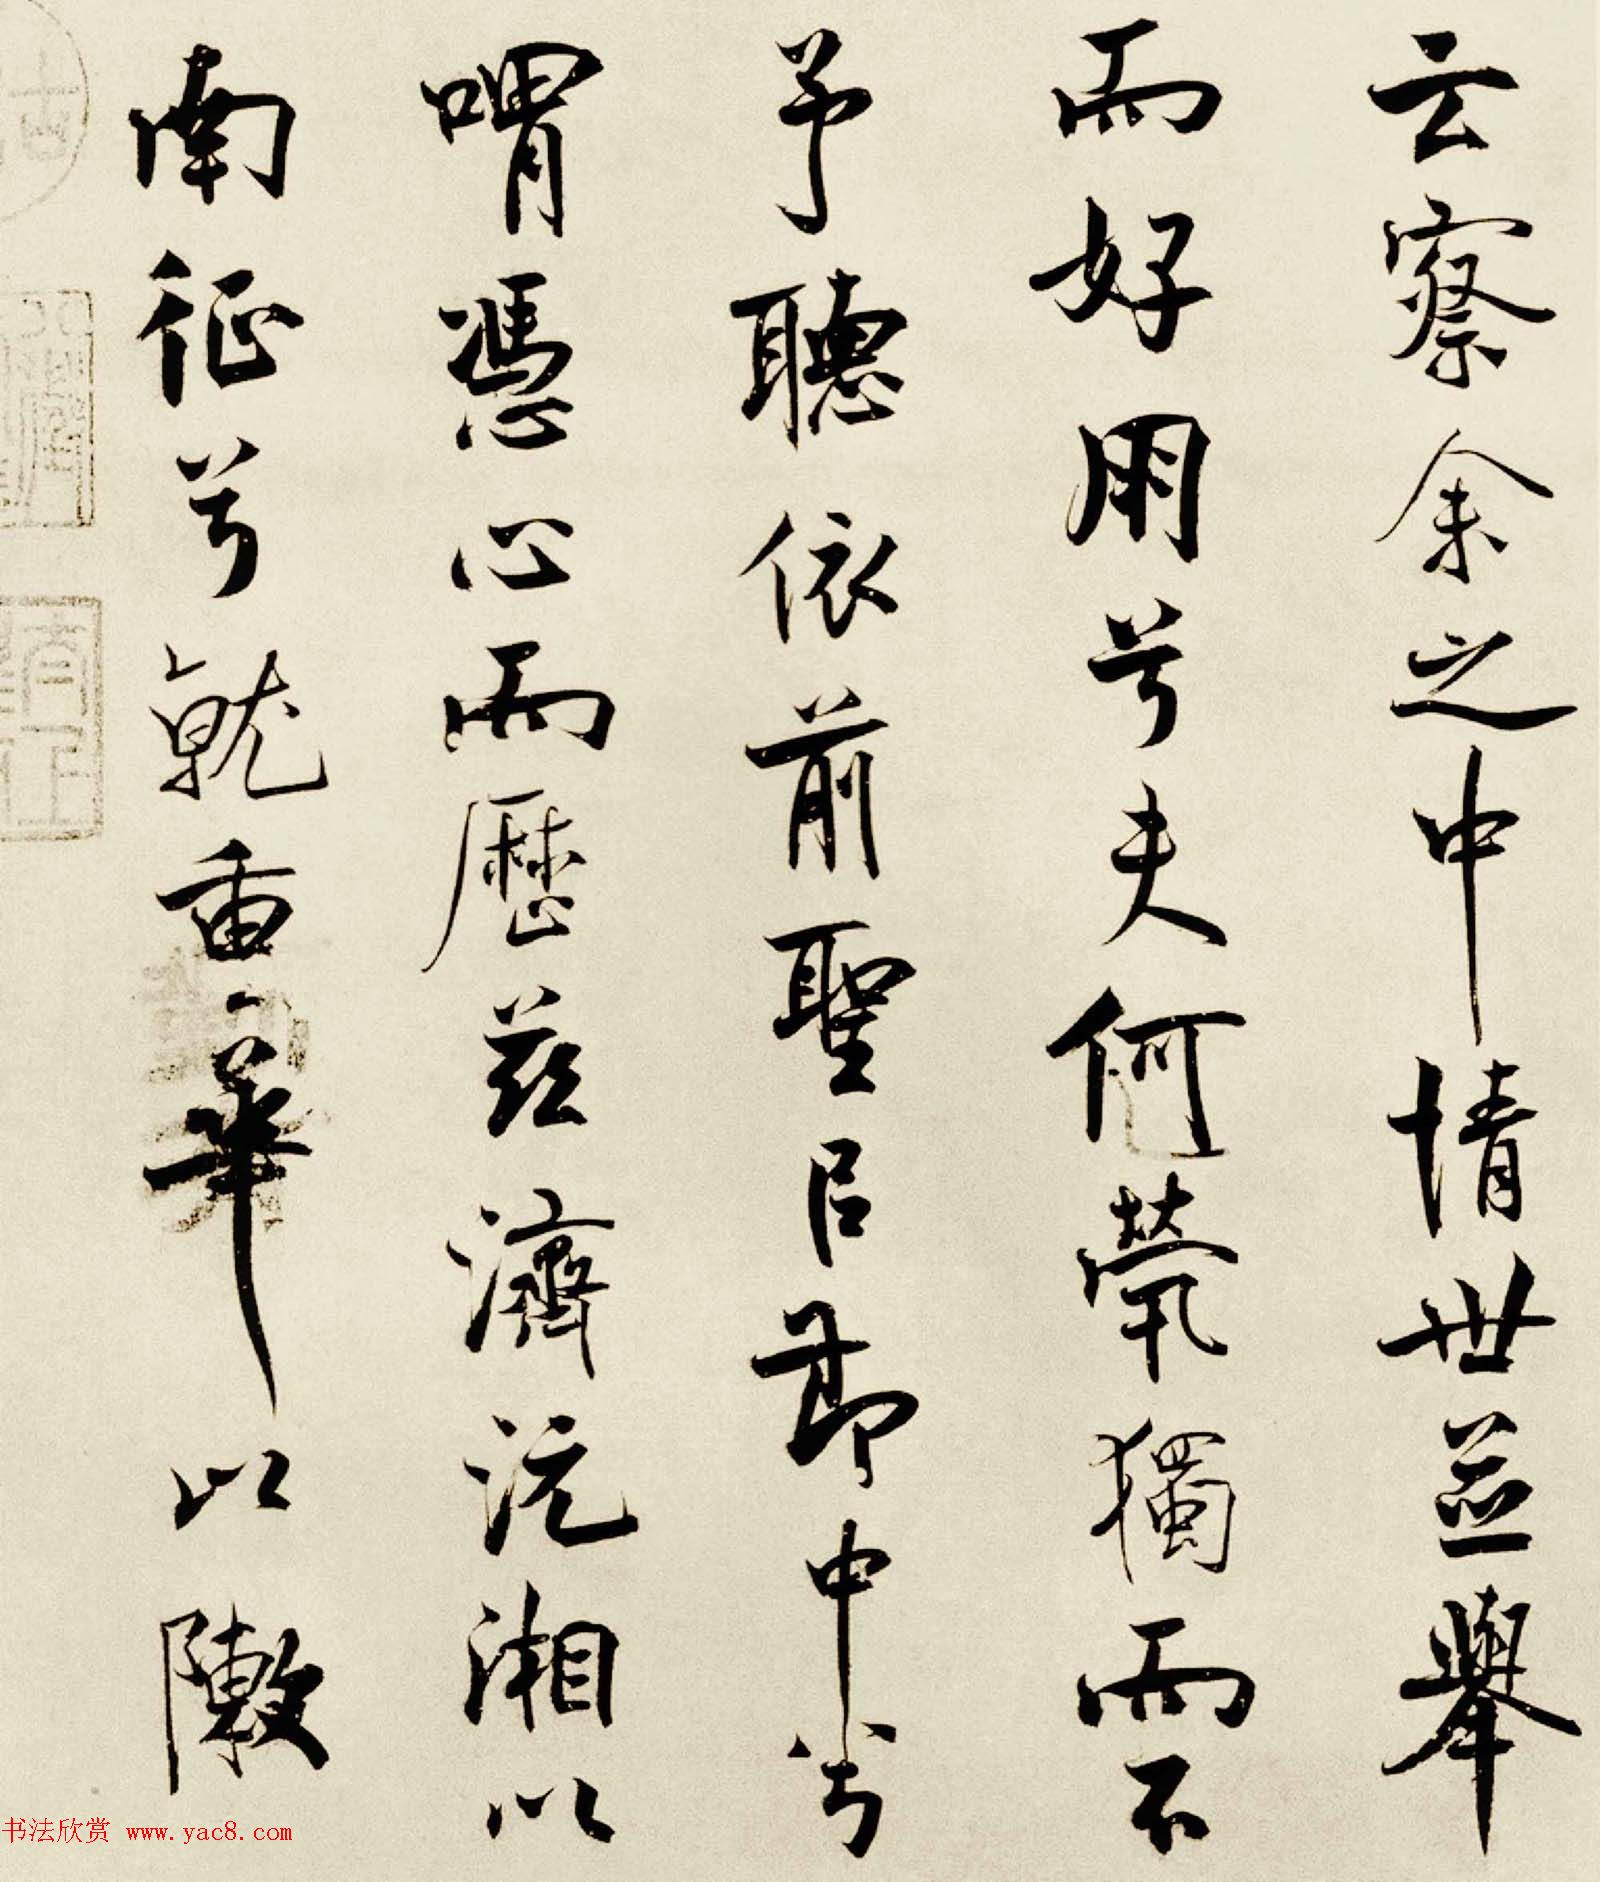 云察余之中情世並舉
而好用兮夫何茕獨而不
予聽依前聖以節中兮
喟憑心而歷茲濟沅湘以
南征兮就重華以敶
书法欣赏 www.yac8.com